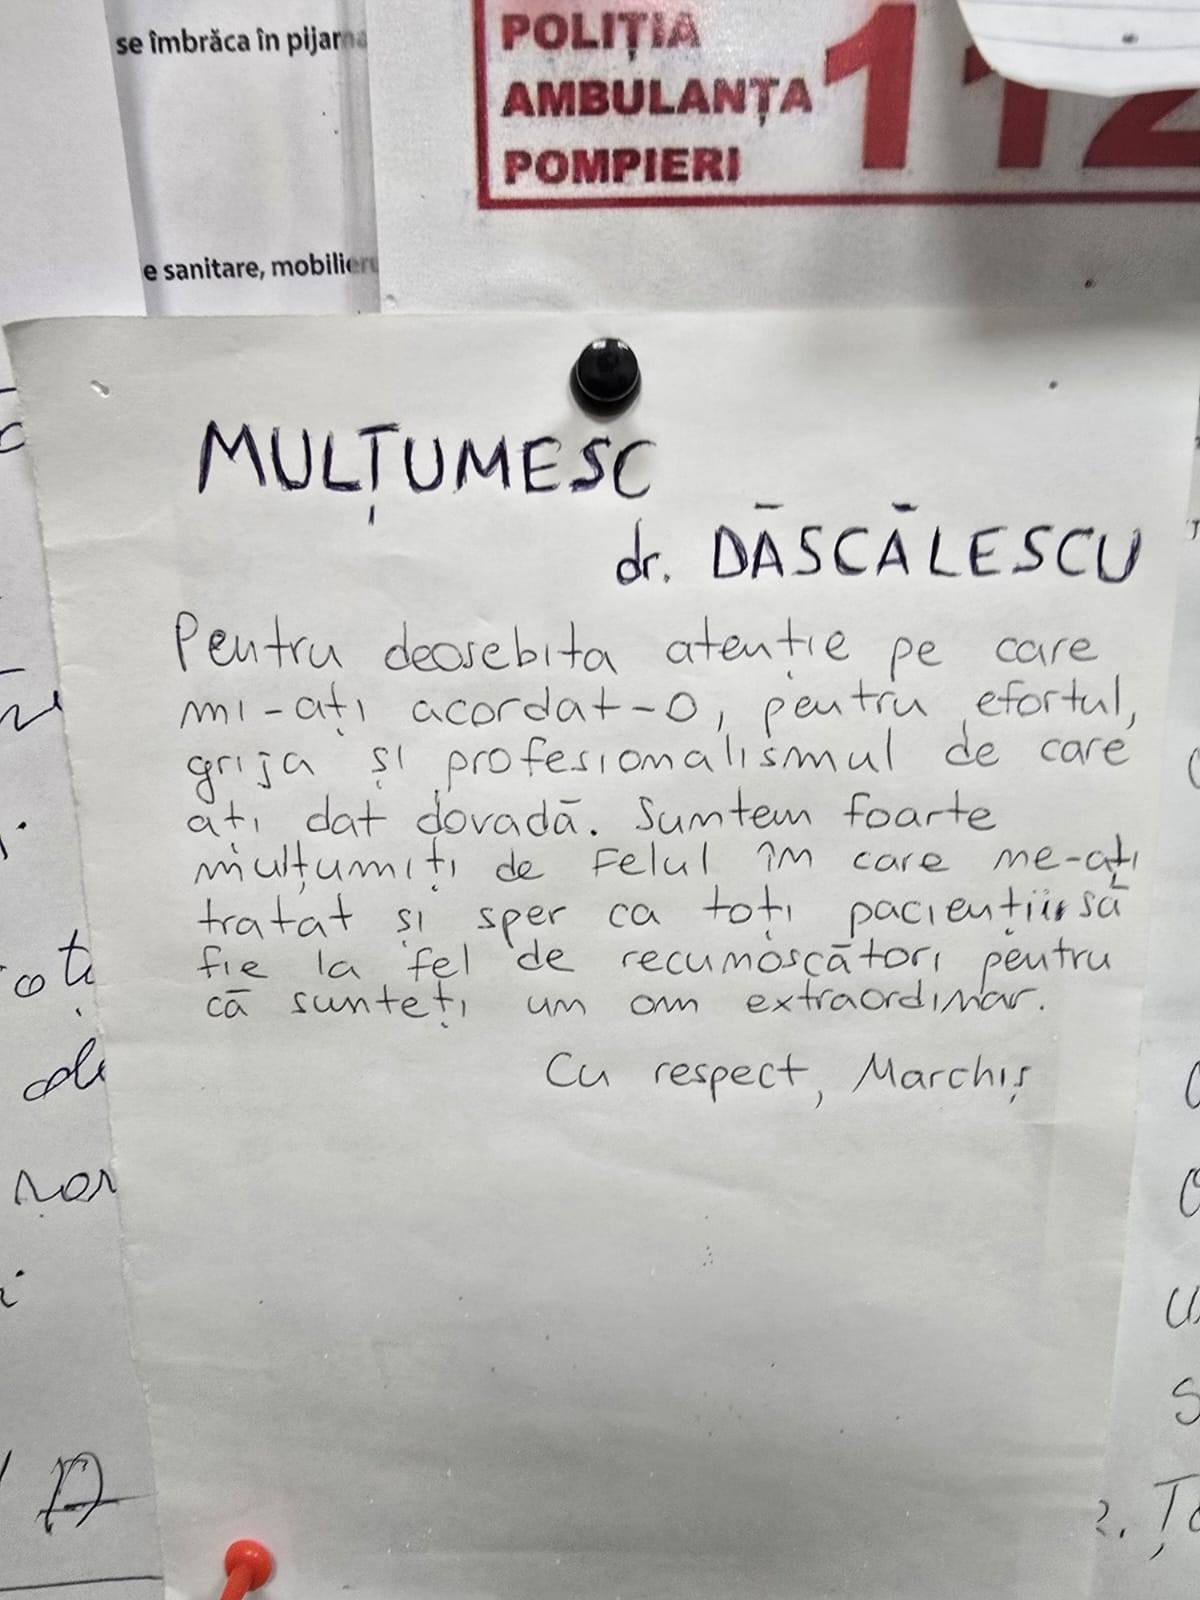 se îmbrăca în pijama
e sanitare, mobilieru
POLIȚIA
AMBULANȚA
POMPIERI
112
MULȚUMESC
dr. DĂSCĂLESCU
Pentru deosebita atenție pe care
mi-ați acordat-o, pentru efortul,
grija și profesionalismul de care
ați dat dovadă. Suntem foarte
mulțumiți de felul în care ne-ați
tratat și sper ca toți pacienții să
fie la fel de recunoscători pentru
că sunteți un om extraordinar.
Cu respect, Marchiș